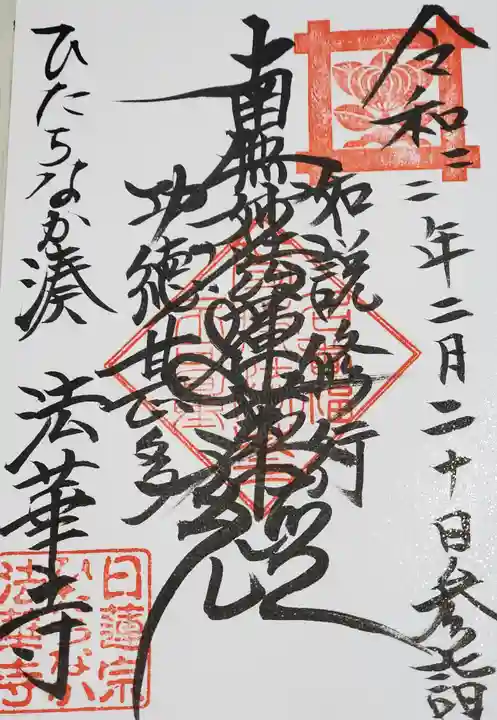 令和三年二月二十日参詣
如説修行
南無妙法蓮華経
功徳甚多
ひたちなか湊 法華寺
日蓮宗
ひたちなか
法華寺